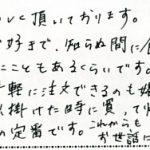 いしく頂いております。
で好きで、知らぬ間に
たこともあるくらいです。
手軽に注文できるのも嬉
出掛けた時に買って
の定番です。これからも
お世話に